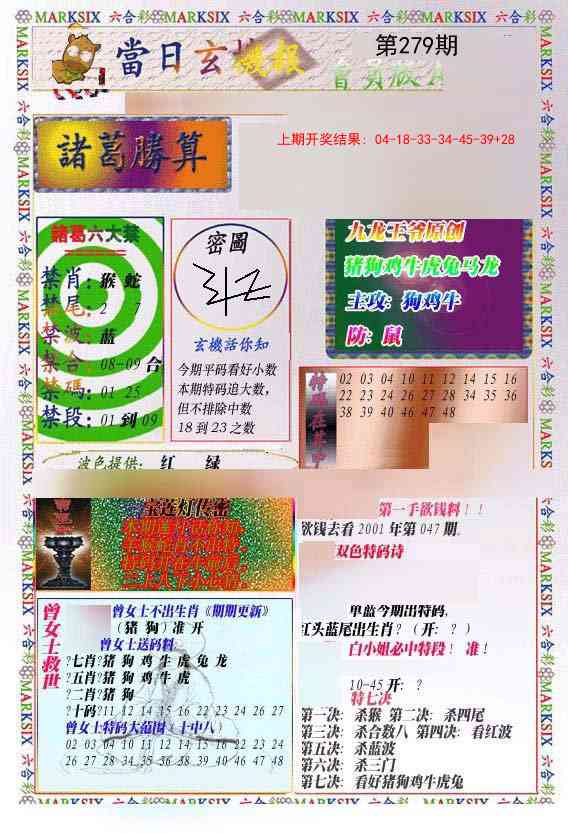 MARKSIX 六合彩 MARKSIX 六合彩 MARKSIX 六合彩 MARKSIX 六合彩 MARKSIX
當日玄機報
第279期
上期开奖结果：04-18-33-34-45-39+28
諸葛勝算
諸葛六大禁
禁肖：猴 蛇
禁尾：2 7
禁波：蓝
禁合：08-09合
禁碼：01 25
禁段：01到09
密圖
玄機話你知
今期平码看好小数
本期特码追大数，
但不排除中数
18到23之数
九龙王爷原创
猪狗鸡牛虎兔马龙
主攻：狗鸡牛
防：鼠
02 03 04 10 11 12 14 15 16
22 23 24 26 27 28 34 35 36
38 39 40 46 47 48
波色提供：红 绿
宝莲灯传密
第一手欲钱料！！
欲钱去看2001年第047期。
双色特码诗
单蓝今期出特码，
红头蓝尾出生肖？（开：？）
白小姐必中特段！ 准！
10-45开：？
曾女士救世
曾女士不出生肖《期期更新》
（猪 狗）准 开
曾女士送码料
?七肖?猪 狗 鸡 牛 虎 兔 龙
?五肖?猪 狗 鸡 牛 虎
?二肖?猪 狗
?十码?11 12 14 15 16 22 23 24 26 27
曾女士特码大范围（十中八）
02 03 04 10 11 12 14 15 18 22 23 24
26 27 28 34 35 36 38 39 40 46 47 48
特七决
第一决：杀猴 第二决：杀四尾
第三决：杀合数八 第四决：看红波
第五决：杀蓝波
第六决：杀三门
第七决：看好猪狗鸡牛虎兔
MARKSIX 六合彩 MARKSIX 六合彩 MARKSIX 六合彩 MARKSIX 六合彩 MARKSIX